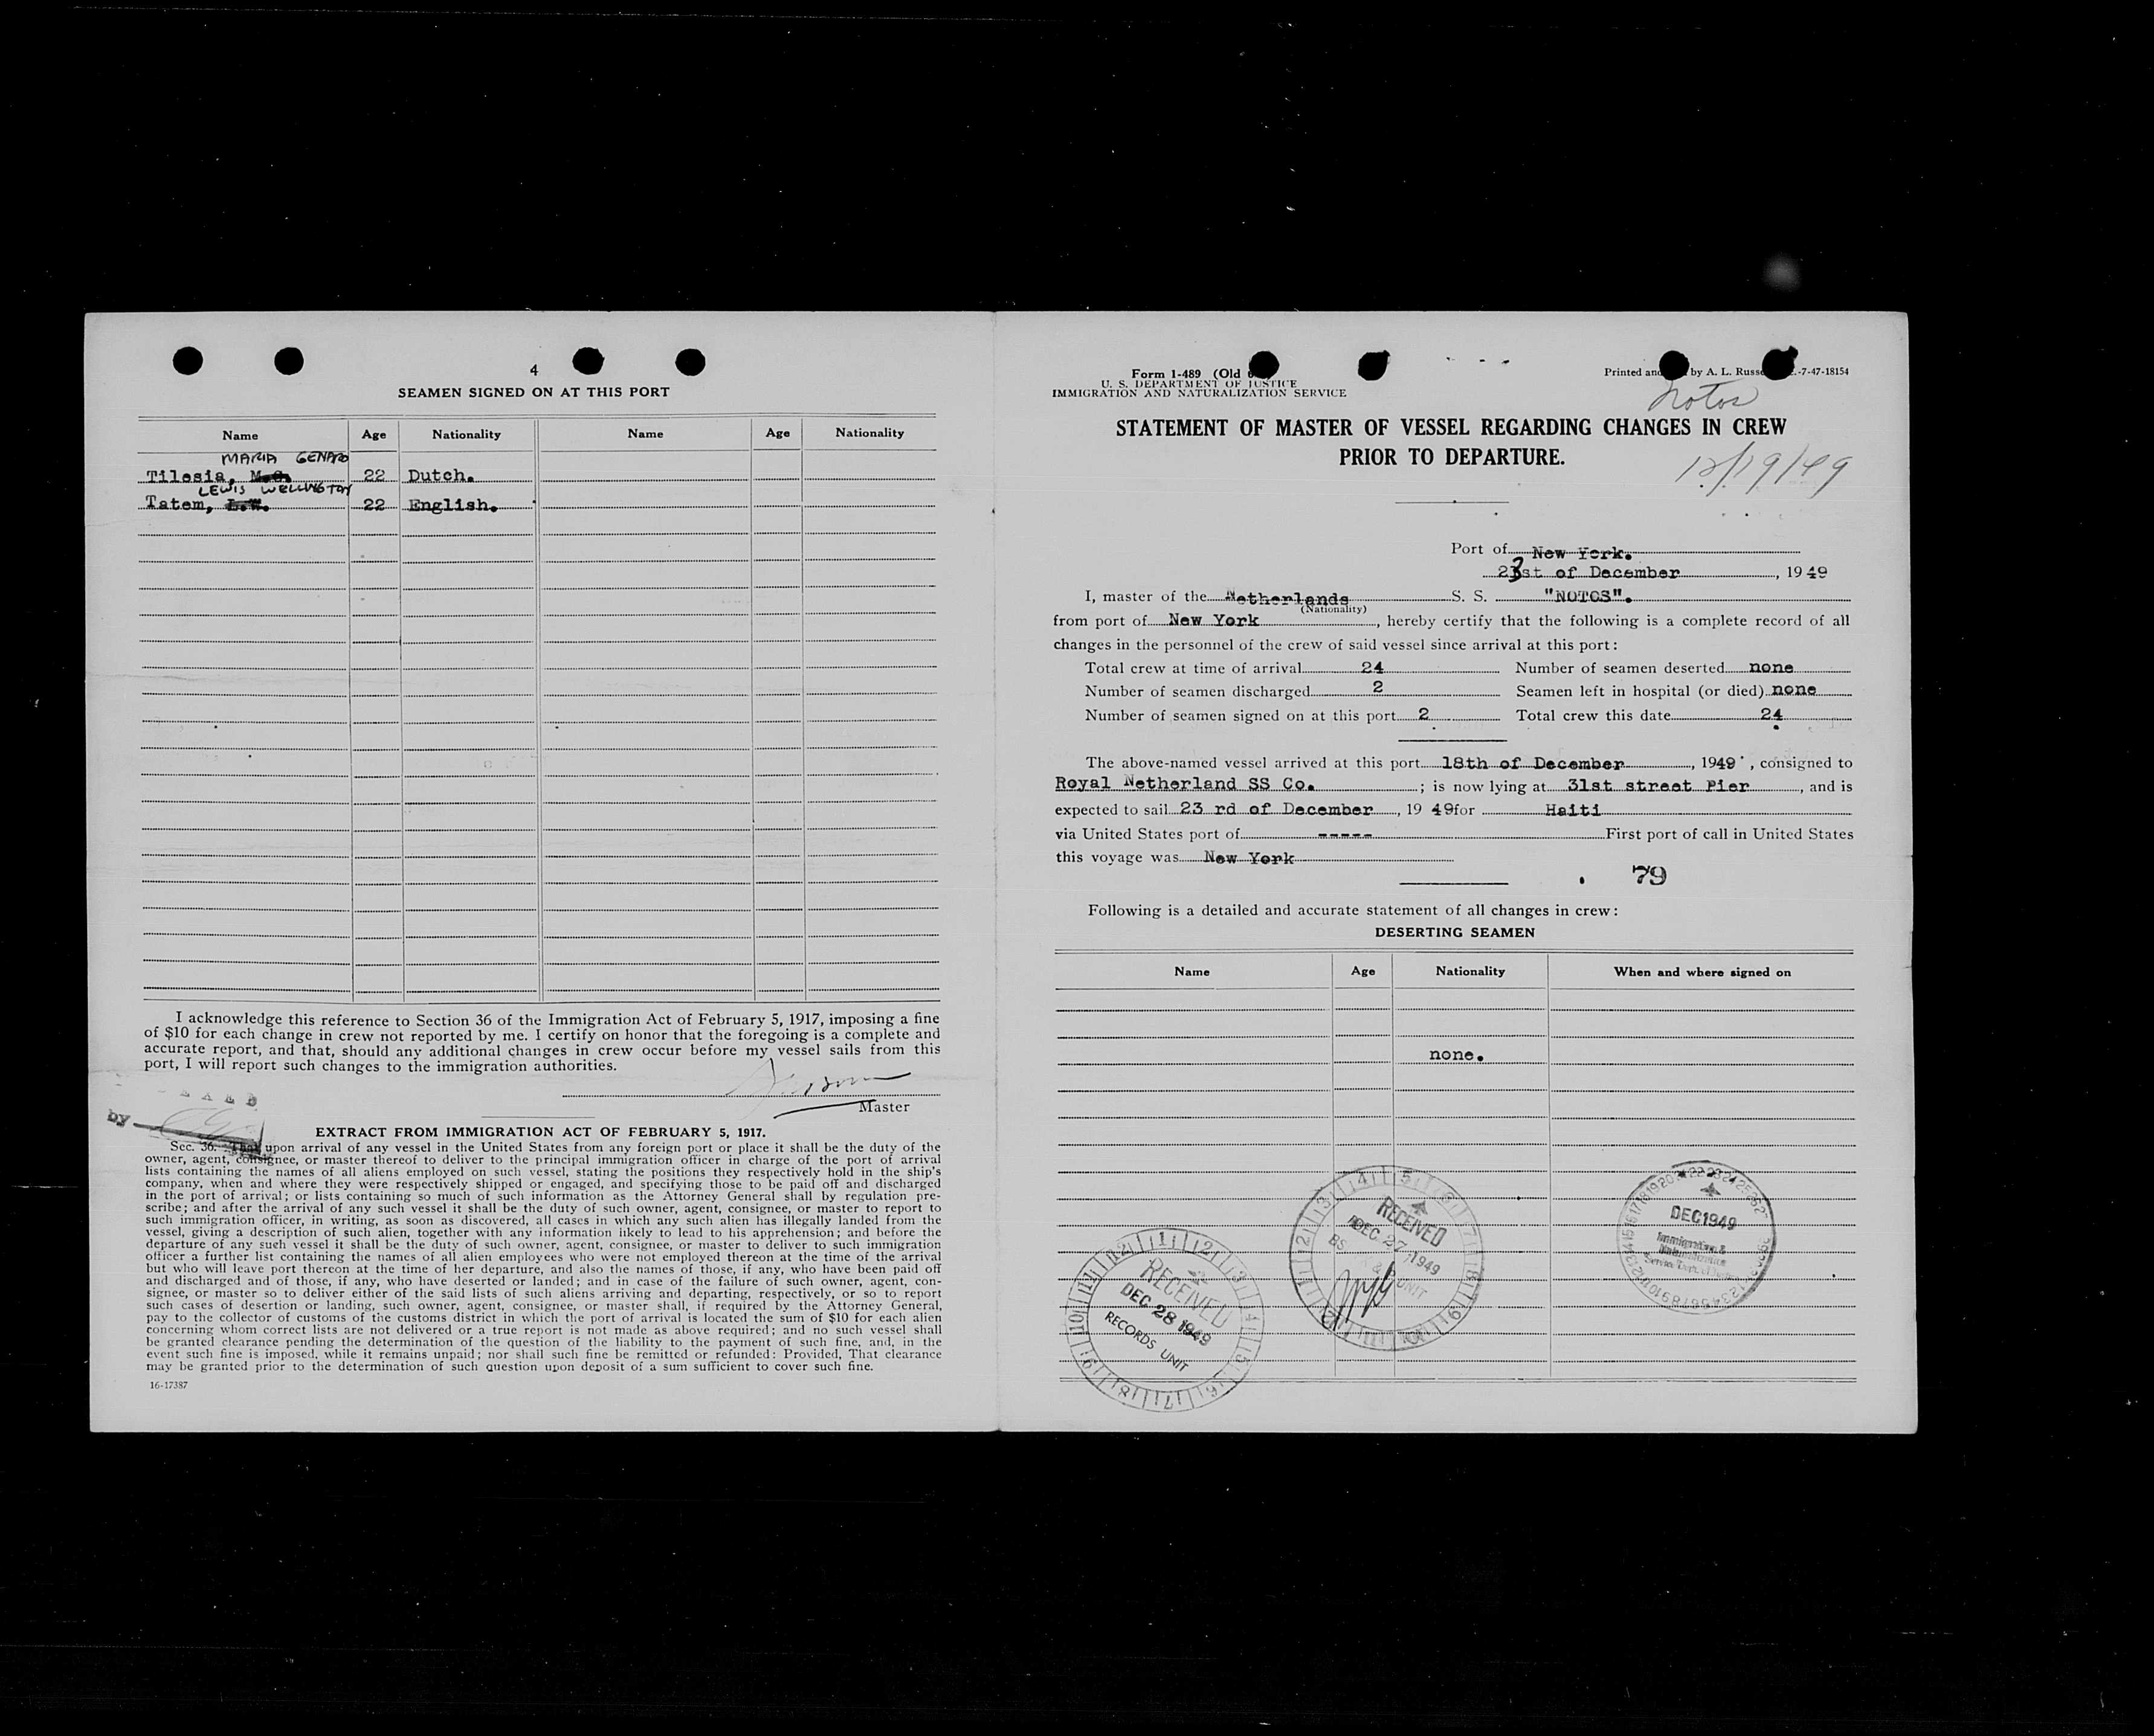 4
SEAMEN SIGNED ON AT THIS PORT
Name Age Nationality Name Age Nationality
MARIA GENARO
Tilesia, M.G. 22 Dutch.
LEWIS WELLINGTON
Tatem, L.W. 22 English.
I acknowledge this reference to Section 36 of the Immigration Act of February 5, 1917, imposing a fine
of $10 for each change in crew not reported by me. I certify on honor that the foregoing is a complete and
accurate report, and that, should any additional changes in crew occur before my vessel sails from this
port, I will report such changes to the immigration authorities.
Master
by
EXTRACT FROM IMMIGRATION ACT OF FEBRUARY 5, 1917.
Sec. 36. That upon arrival of any vessel in the United States from any foreign port or place it shall be the duty of the
owner, agent, consignee, or master thereof to deliver to the principal immigration officer in charge of the port of arrival
lists containing the names of all aliens employed on such vessel, stating the positions they respectively hold in the ship's
company, when and where they were respectively shipped or engaged, and specifying those to be paid off and discharged
in the port of arrival; or lists containing so much of such information as the Attorney General shall by regulation pre-
scribe; and after the arrival of any such vessel it shall be the duty of such owner, agent, consignee, or master to report to
such immigration officer, in writing, as soon as discovered, all cases in which any such alien has illegally landed from the
vessel, giving a description of such alien, together with any information likely to lead to his apprehension; and before the
departure of any such vessel it shall be the duty of such owner, agent, consignee, or master to deliver to such immigration
officer a further list containing the names of all alien employees who were not employed thereon at the time of the arrival
but who will leave port thereon at the time of her departure, and also the names of those, if any, who have been paid off
and discharged and of those, if any, who have deserted or landed; and in case of the failure of such owner, agent, con-
signee, or master so to deliver either of the said lists of such aliens arriving and departing, respectively, or so to report
such cases of desertion or landing, such owner, agent, consignee, or master shall, if required by the Attorney General,
pay to the collector of customs of the customs district in which the port of arrival is located the sum of $10 for each alien
concerning whom correct lists are not delivered or a true report is not made as above required; and no such vessel shall
be granted clearance pending the determination of the question of the liability to the payment of such fine, and, in the
event such fine is imposed, while it remains unpaid; nor shall such fine be remitted or refunded: Provided, That clearance
may be granted prior to the determination of such question upon deposit of a sum sufficient to cover such fine.
16-17387
Form 1-489 (Old
U. S. DEPARTMENT OF JUSTICE
IMMIGRATION AND NATURALIZATION SERVICE
Printed and by A. L. Russ -7-47-18154
Notos
STATEMENT OF MASTER OF VESSEL REGARDING CHANGES IN CREW
PRIOR TO DEPARTURE.
12/19/49
Port of New York.
23st of December, 1949
I, master of the Netherlands S. S. "NOTOS".
(Nationality)
from port of New York, hereby certify that the following is a complete record of all
changes in the personnel of the crew of said vessel since arrival at this port:
Total crew at time of arrival 24 Number of seamen deserted none
Number of seamen discharged 2 Seamen left in hospital (or died) none
Number of seamen signed on at this port 2 Total crew this date 24
The above-named vessel arrived at this port 18th of December, 1949, consigned to
Royal Netherland SS Co.; is now lying at 31st street Pier, and is
expected to sail 23 rd of December, 19 49for Haiti
via United States port of ----- First port of call in United States
this voyage was New York
79
Following is a detailed and accurate statement of all changes in crew:
DESERTING SEAMEN
Name Age Nationality When and where signed on
none.
RECEIVED
DEC 28 1949
RECORDS UNIT
RECEIVED
DEC 27 1949
UNIT
DEC 1949
Immigration &
Naturalization